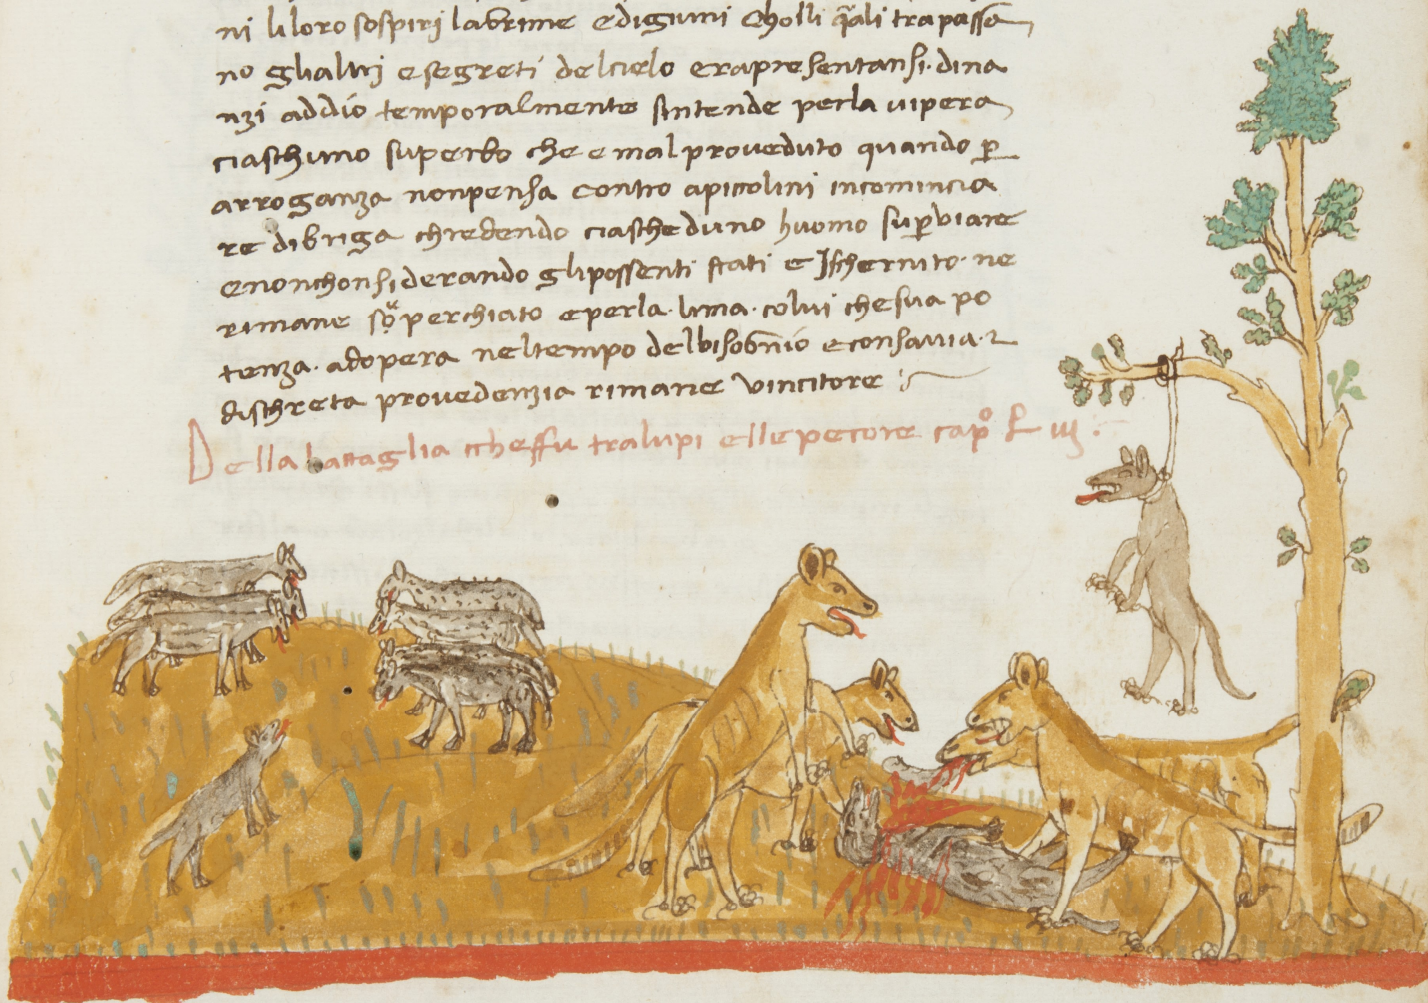 ni li loro sospiri labrime e digiuni Eholli q̄ali trapassa
no ghaltri e segreti delcielo erapresentansi. dina
nzi addio temporalmente sintende perla uipera
ciaschuno superbo che e mal proueduto quando p̱
arroganza nonpensa contro apiccolini incomincia
re dibriga chredendo ciascheduno huomo sup̱uiare
enonchonsiderando glipossenti stati e Ischernito. ne
rimane perchiato eperla. luna. colui chesua po
tenza. adopera neltempo delbisognio econsauia. 
dischreta prouedenzia rimane vincitore :~
Della battaglia ccheffu tralupi ellepecore cap°